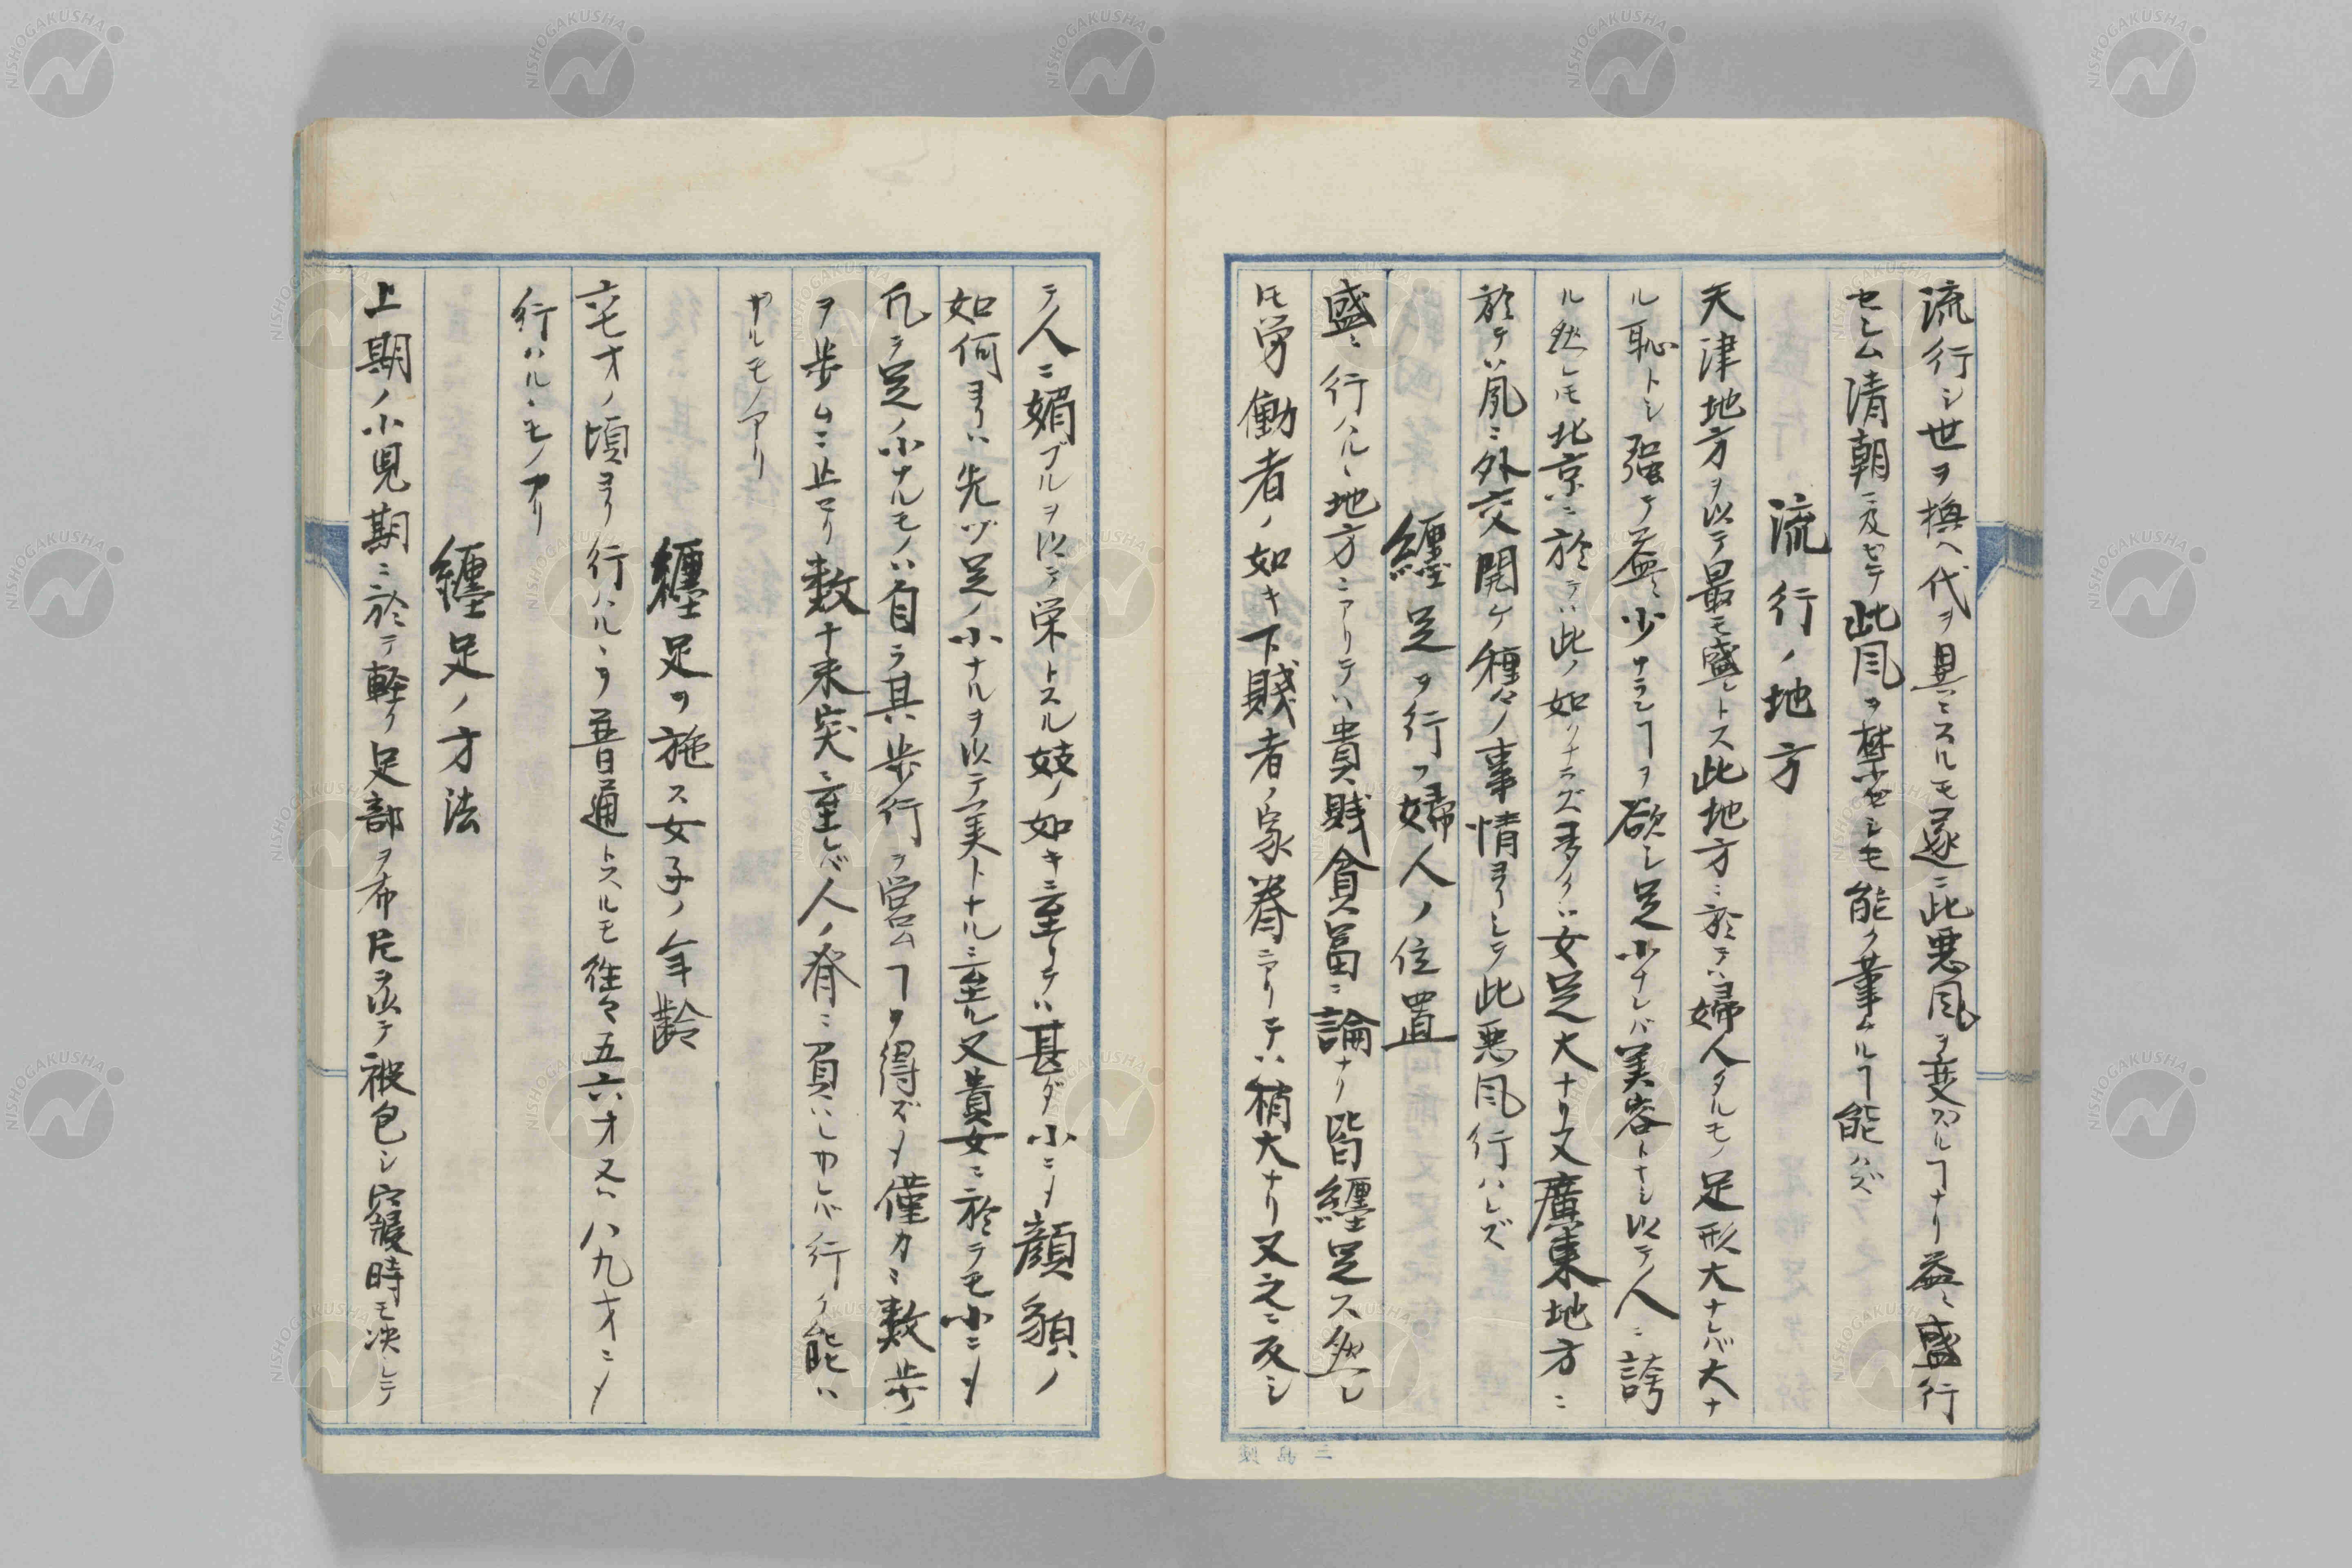 流行シ世ヲ換ヘ代ヲ異ニスルモ遂ニ此悪風ヲ変ズルヿナリ益々盛行
セシム清朝ニ及ビテ此風ヲ禁ゼシモ能ク革ムルヿ能ハズ
流行ノ地方
天津地方ヲ以テ最モ盛レトス此地方ニ於テハ婦人タルモノ足形大ナレバ大ナ
ル恥トシ强テ益々少ナラシヿヲ欲シ足小ナレバ美容トナシ以テ人ニ誇
ル然レ𪜈北京ニ於テハ此ノ如クナラズ多クハ女足大ナリ又廣東地方ニ
於テハ夙ニ外交開ケ種々ノ事情ヨリシテ此悪風行ハレズ
纏足ヲ行フ婦人ノ位置
盛ニ行ハルヽ地方ニアリテハ貴賎貪冨ニ論ナリ皆纏足ス然レ
𪜈労働者ノ如キ下賤者ノ家眷ニアリテハ稍大ナリ又之ニ反シ
テ人ニ媚ブルヲ以テ栄トスル妓ノ如キニ至リテハ甚ダ小ニ〆顔貌ノ
如何ヨリハ先ヅ足ノ小ナルヲ以テ美トナルニ至ル又貴女ニ於テモ小ニ〆
凡テ足ノ小ナルモノハ自ラ其歩行ヲ営ムヿヲ得ズ〆僅カニ数歩
ヲ歩ムニ止マリ数十未突ニ至レバ人ノ脊ニ負ハレカレバ行ク能ハ
ザルモノアリ
纏足ヲ施ス女子ノ年齢
六七才ノ頃ヨリ行ハルヽヲ普通トスルモ往々五六才又ハ八九才ニ〆
行ハルヽモノアリ
纏足ノ方法
上期ノ小児期ニ於テ軽ク足部ヲ布片ヲ以テ被包シ寝時モ决シテ